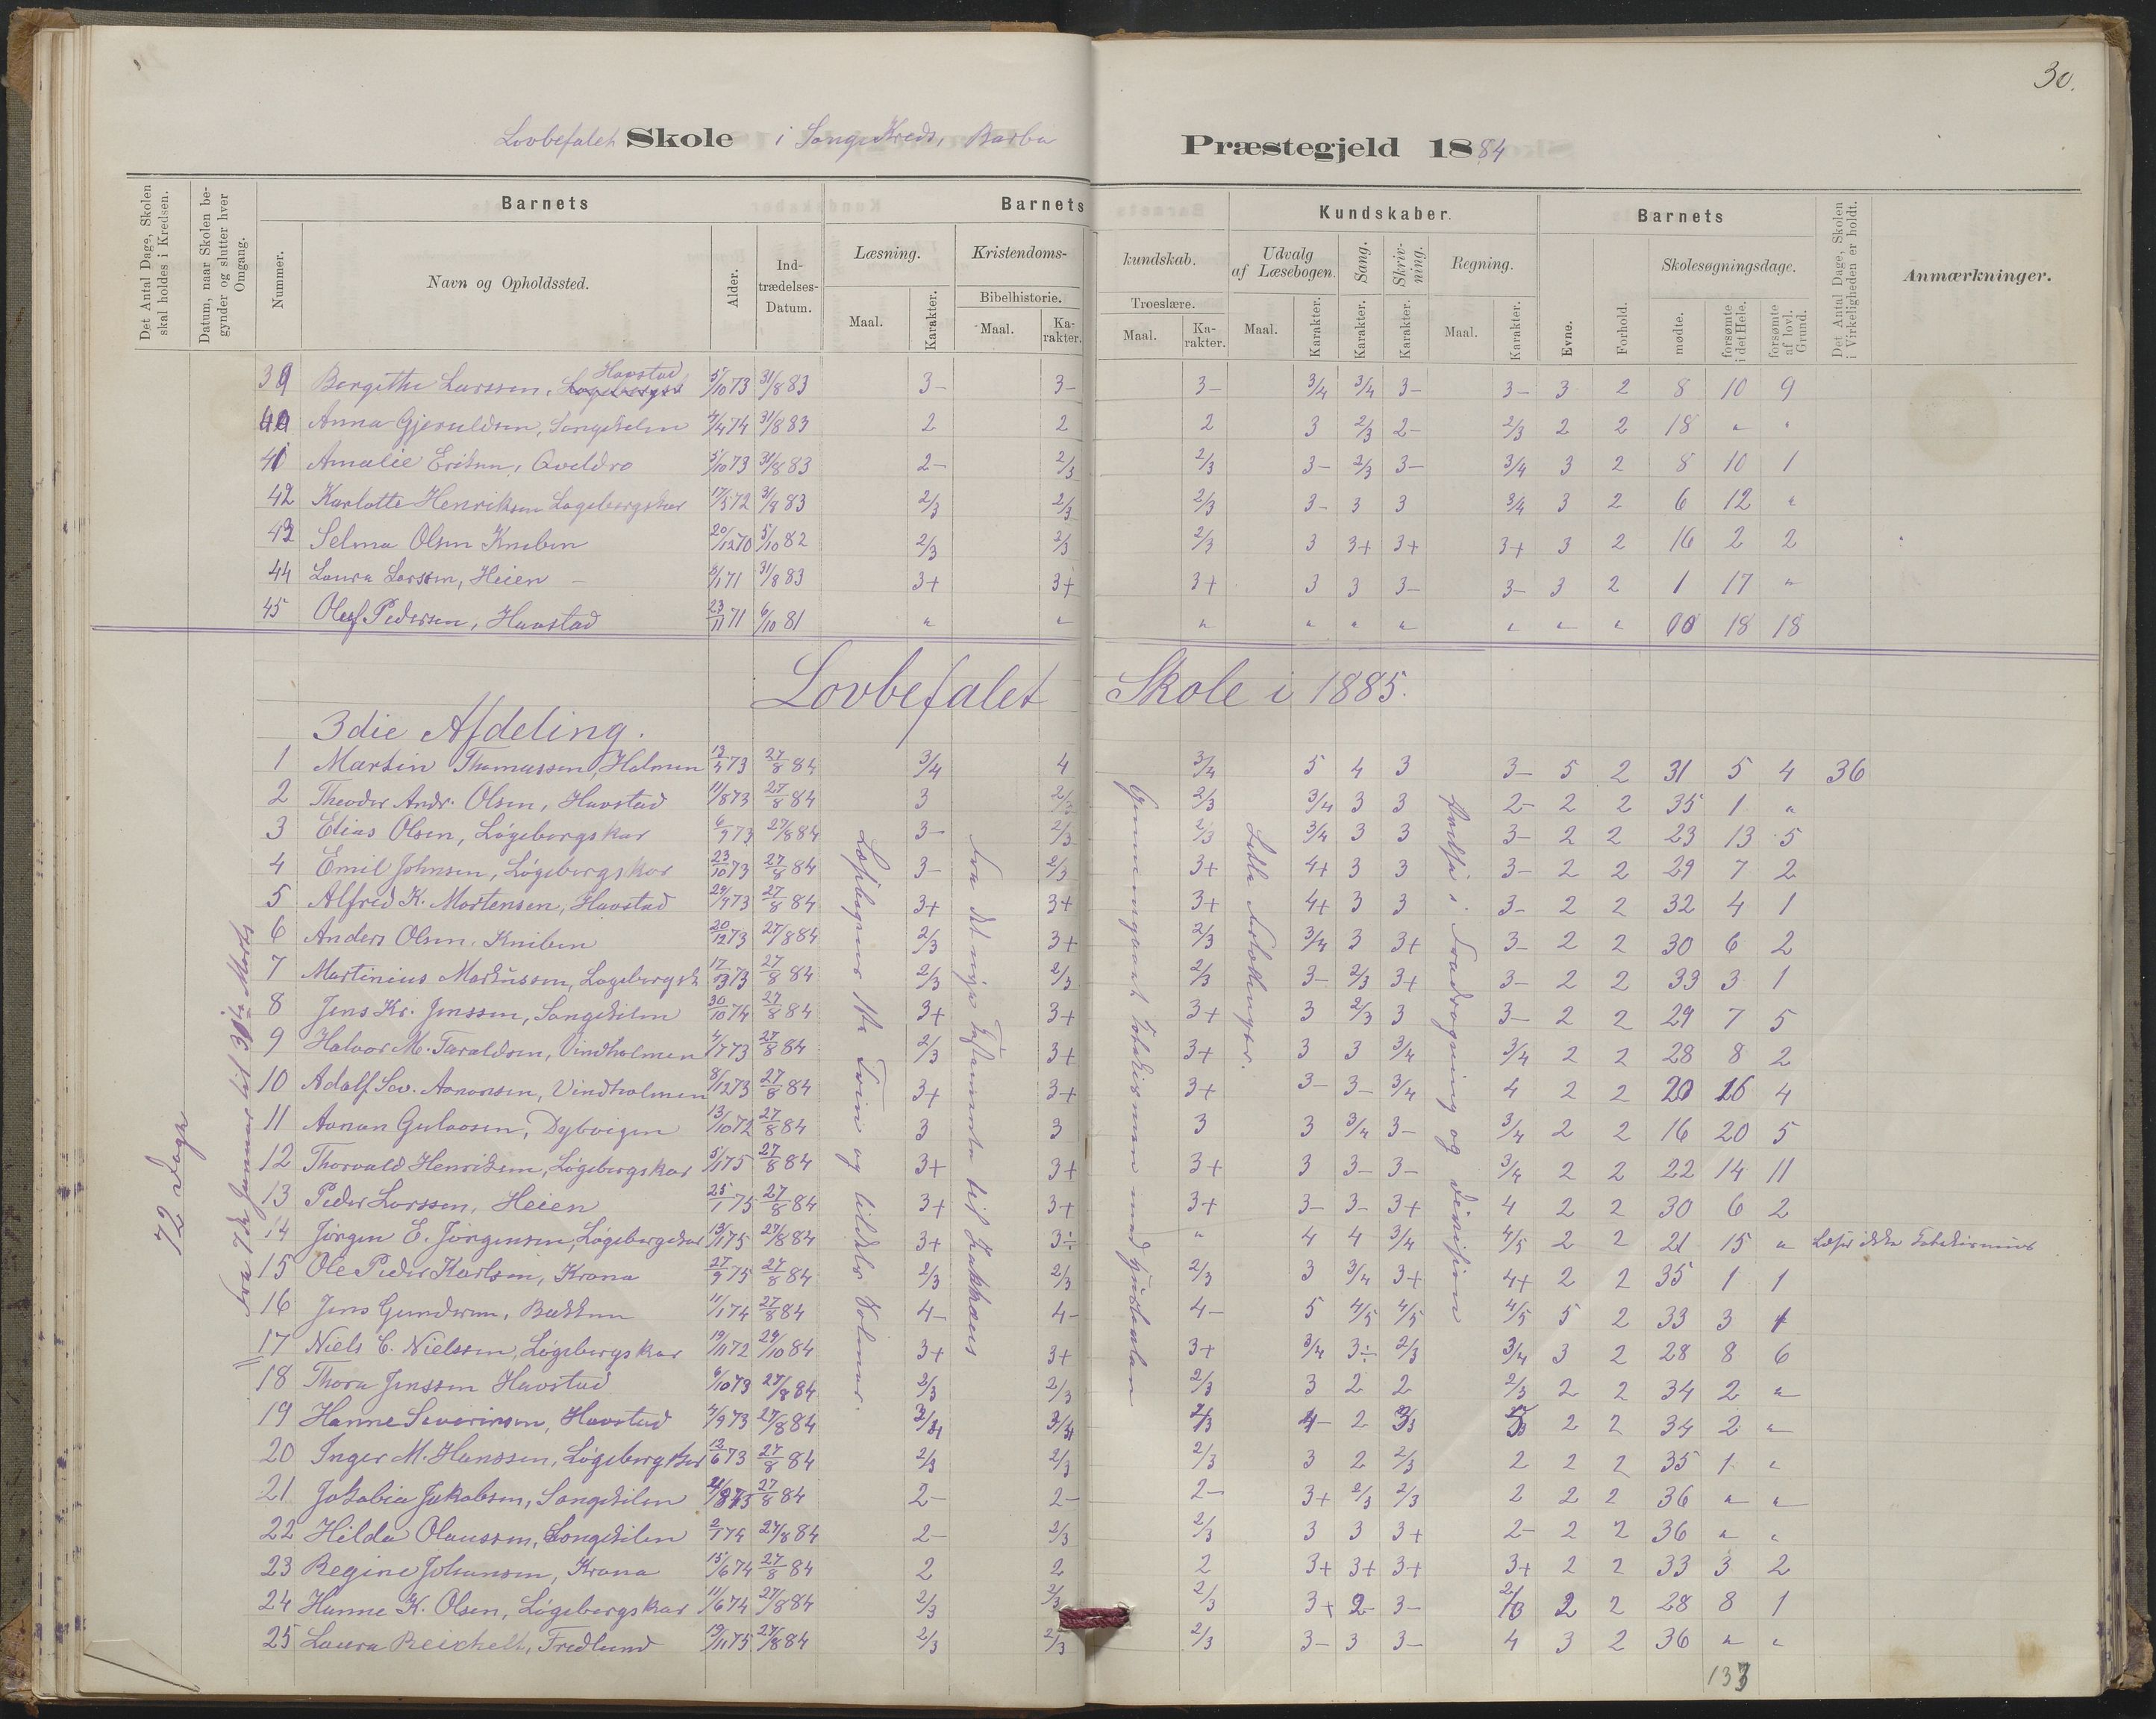 30.
Lovbefalet Skole i Songe Kreds, Barbu Præstegjeld 1884
Det Antal Dage, Skolen skal holdes i Kredsen.
Datum, naar Skolen begynder og slutter hver Omgang.
Barnets
Nummer.
Navn og Opholdssted.
Alder.
Indtrædelses-Datum.
Barnets Kundskaber.
Læsning.
Maal.
Karakter.
Kristendomskundskab.
Bibelhistorie.
Maal.
Karakter.
Troeslære.
Maal.
Karakter.
Udvalg af Læsebogen.
Maal.
Karakter.
Sang.
Karakter.
Skrivning.
Karakter.
Regning.
Maal.
Karakter.
Barnets
Evne.
Forhold.
Skolesøgningsdage.
mødte.
forsømte i det Hele.
forsømte af lovl. Grund.
Det Antal Dage, Skolen i Virkeligheden er holdt.
Anmærkninger.
39 Bergithe Larssen, Havstad 5/10 73 31/8 83 3- 3- 3- 3/4 3/4 3- 3- 3 2 8 10 9
40 Anna Gjeruldsen, Songekilen 4/4 74 31/8 83 2 2 2 3 2/3 2- 2/3 2 2 18 " "
41 Amalie Eriksen, Qveldro 5/10 73 31/8 83 2- 2/3 2/3 3- 2/3 3- 3/4 3 2 8 10 1
42 Karlotte Henriksen Løgebergskar 17/5 72 31/8 83 2/3 2/3 2/3 3- 3 3 3/4 3 2 6 12 "
43 Selma Olsen Kniben 20/12 70 5/10 82 2/3 2/3 2/3 3 3+ 3+ 3+ 3 2 16 2 2
44 Laura Larssen, Heien 8/1 71 31/8 83 3+ 3+ 3+ 3 3 3- 3- 3 2 1 17 "
45 Oluf Pedersen, Havstad 23/11 71 6/10 81 " " " " " " " " " 00 18 18
Lovbefalet Skole i 1885.
3die Afdeling.
72 Dage
Fra 7de Januar til 31te Marts
Læsebogens 1ste Trin og tildels Volmar.
Fra det nye Testamente til Zakkæus
Gjennemgaaet Katekismen med Hustavlen
Lette Fortællinger.
Færdig i Fradragning og Division
1 Martin Thomassen, Holmen 13/4 73 27/8 84 3/4 4 3/4 5 4 3 3- 5 2 31 5 4 36
2 Theodor Andr. Olsen, Havstad 11/8 73 27/8 84 3 2/3 2/3 3/4 3 3 2- 2 2 35 1 "
3 Elias Olsen, Løgebergskar 6/9 73 27/8 84 3- 2/3 2/3 3/4 3 3 3- 2 2 23 13 5
4 Emil Johnsen, Løgebergskar 23/10 73 27/8 84 3- 2/3 3+ 4+ 3 3 3- 2 2 29 7 2
5 Alfred K. Mortensen, Havstad 29/9 73 27/8 84 3+ 3+ 3+ 4+ 3 3 3- 2 2 32 4 1
6 Anders Olsen, Kniben 20/12 73 27/8 84 2/3 3+ 2/3 3/4 3 3+ 3- 2 2 30 6 2
7 Martinius Markussen, Løgebergsk 17/3 73 27/8 84 2/3 2/3 2/3 3- 2/3 3+ 3- 2 2 33 3 1
8 Jens Kr. Jenssen, Songekilen 30/10 74 27/8 84 3+ 3+ 3+ 3 2/3 3 3- 2 2 29 7 5
9 Halvor M. Taraldsen, Vindholmen 4/7 73 27/8 84 2/3 3+ 3+ 3 3 3/4 3/4 2 2 28 8 2
10 Adolf Sev. Aanonsen, Vindholmen 8/12 73 27/8 84 3+ 3+ 3+ 3- 3- 3/4 4 2 2 20 16 4
11 Aanon Gulovsen, Dybvigen 13/10 72 27/8 84 3 3 3 3 3/4 3- 3/4 2 2 16 20 5
12 Thorvald Henriksen, Løgebergskar 5/1 75 27/8 84 3+ 3+ 3+ 3 3- 3- 3/4 2 2 22 14 11
13 Peder Larssen, Heien 25/1 75 27/8 84 3+ 3+ 3+ 3- 3- 3+ 4 2 2 30 6 2
14 Jørgen E. Jørgensen, Løgebergskar 13/11 75 27/8 84 3+ 3÷ " 4 4 3/4 4/5 2 2 21 15 " Læser ikke Katekismus
15 Ole Peder Karlsen, Krona 27/9 75 27/8 84 2/3 2/3 2/3 3 3/4 3+ 4+ 2 2 35 1 1
16 Jens Gundersen, Bakken 11/1 74 27/8 84 4- 4- 4- 5 4/5 4/5 4/5 5 2 33 3 1
17 Niels C. Nielssen, Løgebergskar 19/11 72 29/10 84 3+ 3+ 3+ 3/4 3÷ 2/3 3/4 3 2 28 8 6
18 Thora Jenssen Havstad 6/10 73 27/8 84 2/3 2/3 2/3 3 2 2 2/3 2 2 34 2 "
19 Hanne Severinsen, Havstad 4/9 73 27/8 84 3/4 3/4 2/3 4- 2 2/3 3 2 2 34 2 "
20 Inger M. Hanssen, Løgebergskar 12/6 73 27/8 84 2/3 2/3 2/3 3 2 2/3 2 2 2 35 1 "
21 Jakobia Jakobsen, Songekilen 27/8 84 2- 2- 2- 3+ 2/3 2/3 2 2 2 36 " "
22 Hilda Olaussen, Songekilen 2/1 74 27/8 84 2- 2/3 2/3 3 3 3+ 2- 2 2 36 " "
23 Regine Johansen, Krona 15/6 74 27/8 84 2 2 2 3+ 3+ 3+ 3+ 2 2 33 3 2
24 Hanne K. Olsen, Løgebergskar 11/6 74 27/8 84 2/3 2/3 2/3 3+ 2- 3- 2/3 2 2 28 8 1
25 Laura Reichelt, Fredlund 19/11 75 27/8 84 2/3 2/3 2/3 3- 3 3- 4 3 2 36 " "
133